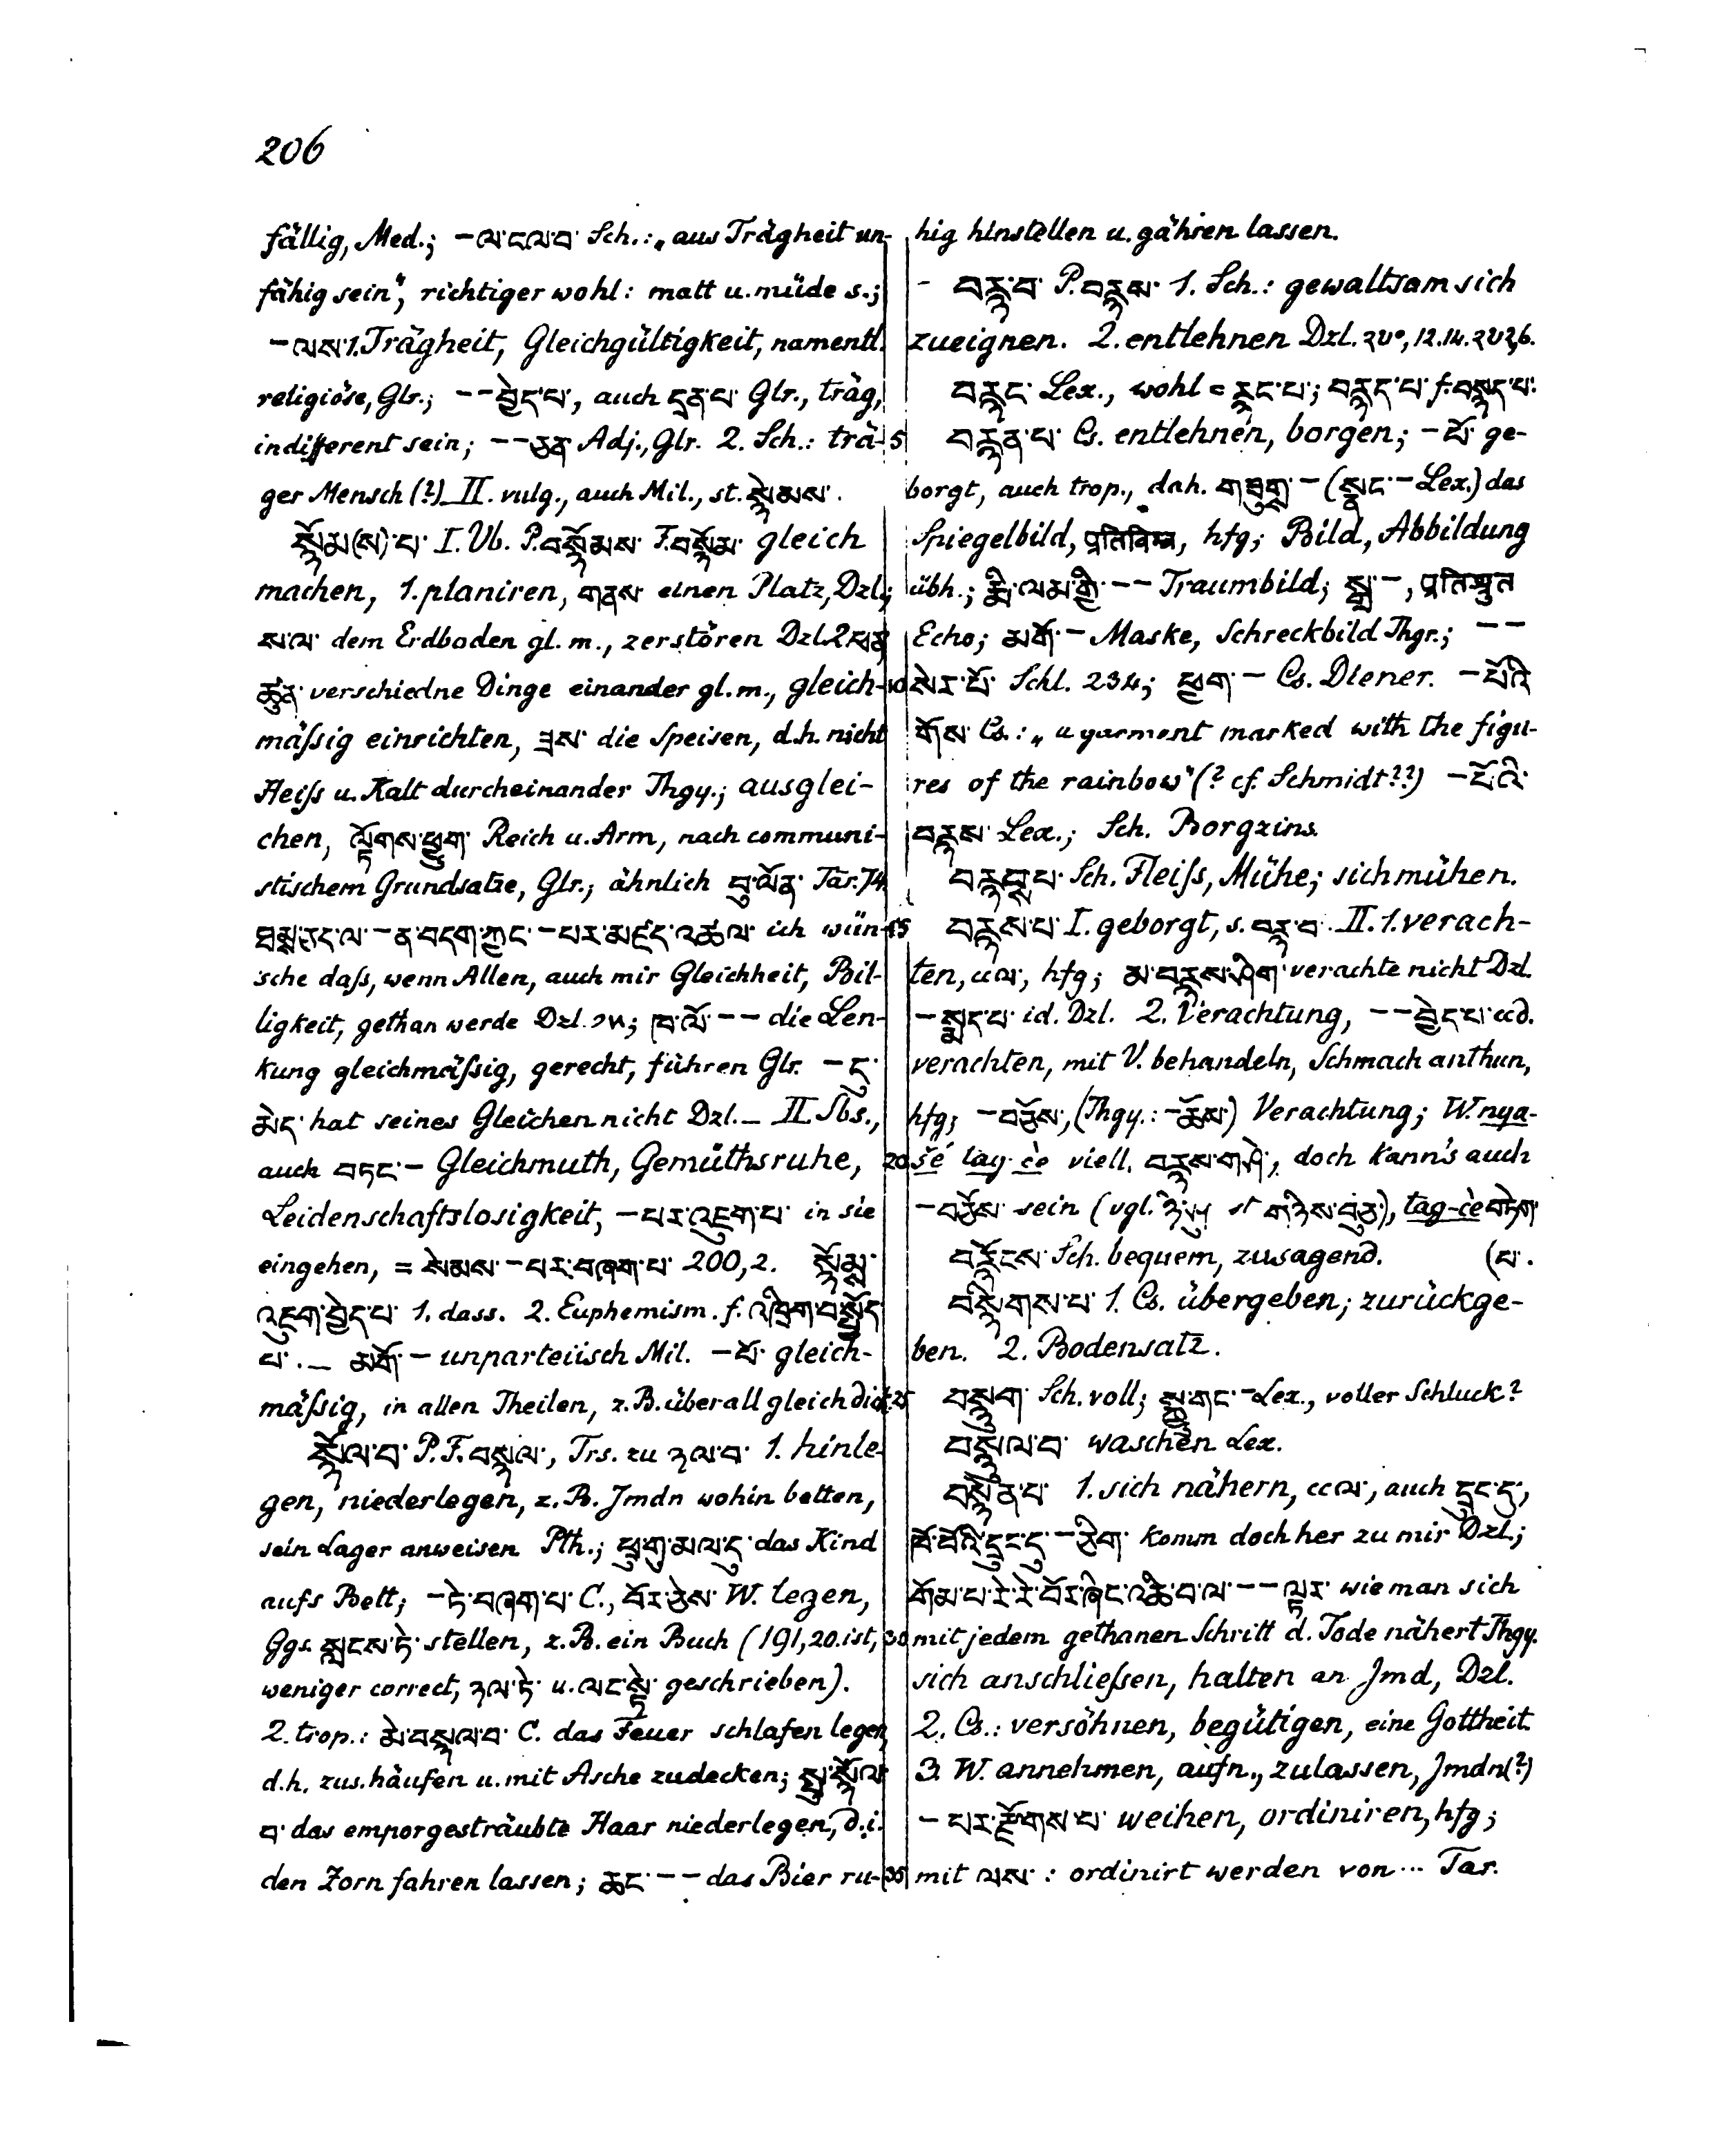 206
fällig, Med.; –ལ་ངལ་བ་ Sch.: „aus Trägheit un-
fähig sein“, richtiger wohl: matt u. müde s.;
–ལས་ 1. Trägheit, Gleichgültigkeit, namentl.
religiöse, Glr.; – –བྱེད་པ་, auch དྲན་པ་ Glr., träg,
indifferent sein; – –ཅན་ Adj., Glr. 2. Sch.: trä-
ger Mensch (?) _ II. vulg., auch Mil., st. སྙེམས་.
སྙོམ(ས)་པ་ I. Vb. P. བསྙོམས་ F. བསྙོམ་ gleich
machen, 1. planiren, གནས་ einen Platz, Dzl.;
ས་ལ་ dem Erdboden gl. m., zerstören Dzl. 2. ཕན་
ཚུན་ verschiedne Dinge einander gl. m., gleich-
mäſsig einrichten, ཟས་ die Speisen, d.h. nicht
Heiſs u. Kalt durcheinander Thgy.; ausglei-
chen, ལྟོགས་ཕྱུག་ Reich u. Arm, nach communi-
stischem Grundsatze, Glr.; ähnlich བུ་ལོན་ Tār. 74.
ཐམས་ཅད་ལ་ –ན་བདག་ཀྱང་ –པར་མཛད་འཚལ་ ich wün-
sche daſs, wenn Allen, auch mir Gleichheit, Bil-
ligkeit, gethan werde Dzl.; ཁ་ལོ་ – – die Len-
kung gleichmäſsig, gerecht, führen Glr. –དུ་
མེད་ hat seines Gleichen nicht Dzl. _ II. Sbs.,
auch བཏང་– Gleichmuth, Gemüthsruhe,
Leidenschaftslosigkeit, –པར་འཇུག་པ་ in sie
eingehen, = སེམས་ –པར་བཞག་པ་ 200,2. སྙོམས་
འཇུག་བྱེད་པ་ 1. dass. 2. Euphemism. f. འཁྲིག་པ་སྤྱོད་
པ་. _ མགོ་– unparteiisch Mil. –པོ་ gleich-
mäſsig, in allen Theilen, z.B. überall gleich dick.
སྙོལ་བ་ P.F. བསྙལ་, Trs. zu ཉལ་བ་ 1. hinle-
gen, niederlegen, z.B. Jmdn wohin betten,
sein Lager anweisen Pth.; ཕྲུ་གུ་མལ་དུ་ das Kind
aufs Bett; –ཏེ་བཞག་པ་ C., བོར་ཅེས་ W. legen,
Ggs. སླངས་ཏེ་ stellen, z.B. ein Buch (191, 20. ist,
weniger correct, ཉལ་ཏེ་ u. ལང་སྟེ་ geschrieben).
2. trop.: མེ་བསྙལ་བ་ C. das Feuer schlafen legen,
d.h. zus.häufen u. mit Asche zudecken; སྐྲ་སྙོལ་
བ་ das emporgesträubte Haar niederlegen, d.i.
den Zorn fahren lassen; ཆང་ – – das Bier ru-
hig hinstellen u. gähren lassen.
- བརྙ་བ་ P. བརྙས་ 1. Sch.: gewaltsam sich
zueignen. 2. entlehnen Dzl. ༢༧༠, 12. 14. ༢༧༢, 6.
བརྙང་ Lex., wohl = རྙང་པ་; བརྙད་པ་ f. བསྙད་པ་.
5 བརྙན་པ་ Cs. entlehnen, borgen; –པོ་ ge-
borgt, auch trop., dah. གཟུགས་– (སྣང་–Lex.) das
Spiegelbild, प्रतिबिम्ब, hfg; Bild, Abbildung
übh.; རྨི་ལམ་གྱི་ – – Traumbild; སྒྲ་–, प्रतिश्रुत
Echo; མགོ་– Maske, Schreckbild Thgr.; – –
10 སེར་པོ་ Schl. 234; ཕྱག་– Cs. Diener. –པོའི་
གོས་ Cs.: „a garment marked with the figu-
res of the rainbow“ (? cf. Schmidt??) –པོའི་
བརྙས་ Lex.; Sch. Borgzins.
བརྙབ་པ་ Sch. Fleiſs, Mühe; sich mühen.
15 བརྙས་པ་ I. geborgt, s. བརྙ་བ་. II. 1. verach-
ten, ccལ་, hfg; མ་བརྙས་ཤིག་ verachte nicht Dzl.
–སྨད་པ་ id. Dzl. 2. Verachtung, – –བྱེད་པ་ ccd.
verachten, mit V. behandeln, Schmach anthun,
hfg; –བཅོས་, (Thgy.: –ཆོས་) Verachtung; W. nya-
20 šé tāg-čè viell. བརྙས་གཤེ་, doch kann's auch
–བཅོས་ sein (vgl. st གཉིས་བཅུ་), tāg-čè བཏེག་
བརྙོངས་ Sch. bequem, zusagend. (པ་.
བསྙིགས་པ་ 1. Cs. übergeben; zurückge-
ben. 2. Bodensatz.
25 བསྙུག་ Sch. voll; –Lex., voller Schluck?
བསྙུལ་བ་ waschen Lex.
བསྙེན་པ་ 1. sich nähern, ccལ་, auch དྲུང་དུ་,
ཁོ་བོའི་དྲུང་དུ་ –ཅིག་ komm doch her zu mir Dzl.;
གོམ་པ་རེ་རེ་བོར་ཞིང་འཆི་བ་ལ་ – –ལྟར་ wie man sich
30 mit jedem gethanen Schritt d. Tode nähert Thgy.
sich anschlieſsen, halten an Jmd, Dzl.
2. Cs.: versöhnen, begütigen, eine Gottheit.
3. W. annehmen, aufn., zulassen, Jmdn (?)
–པར་རྫོགས་པ་ weihen, ordiniren, hfg;
35 mit ལས་: ordinirt werden von ... Tar.